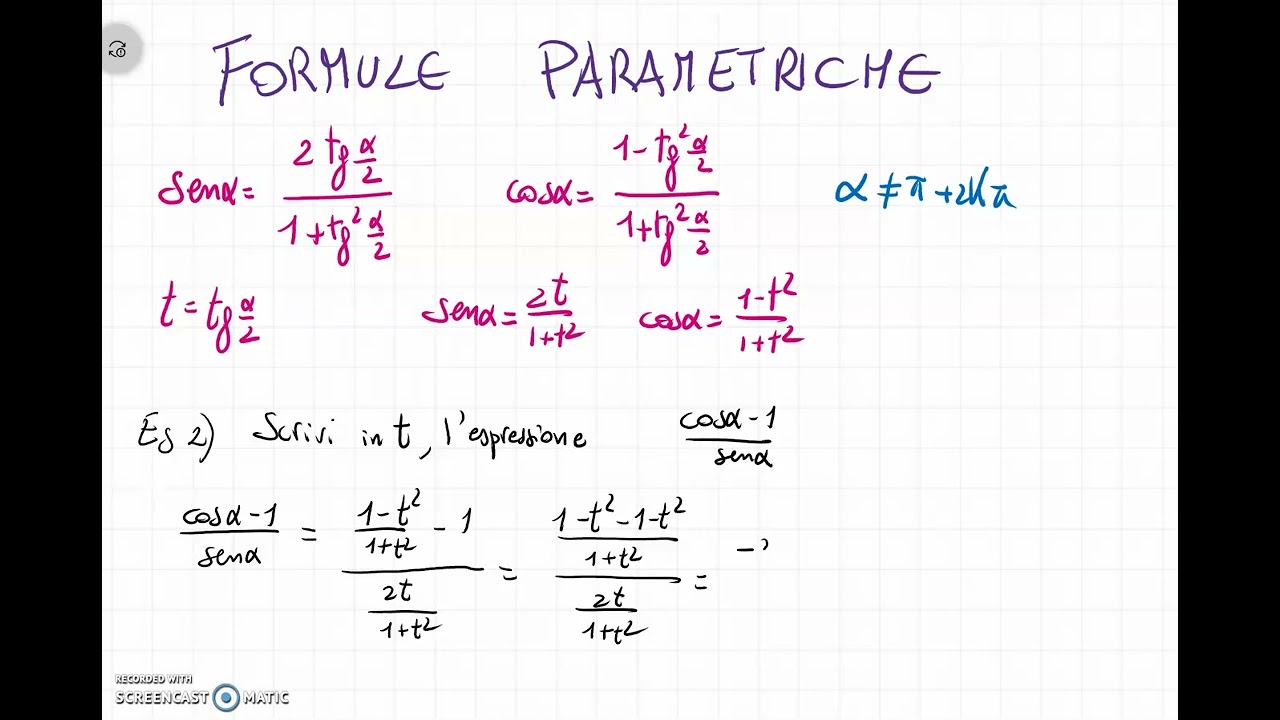 FORMULE PARAMETRICHE
senα = (2 tg α/2)/(1 + tg² α/2) cosα = (1 - tg² α/2)/(1 + tg² α/2) α ≠ π + 2kπ
t = tg α/2 senα = 2t/(1+t²) cosα = (1-t²)/(1+t²)
Es 2) Scrivi in t, l'espressione (cosα - 1)/senα
(cosα - 1)/senα = ((1-t²)/(1+t²) - 1)/(2t/(1+t²)) = ((1-t²-1-t²)/(1+t²))/(2t/(1+t²)) = -
RECORDED WITH
SCREENCAST MATIC